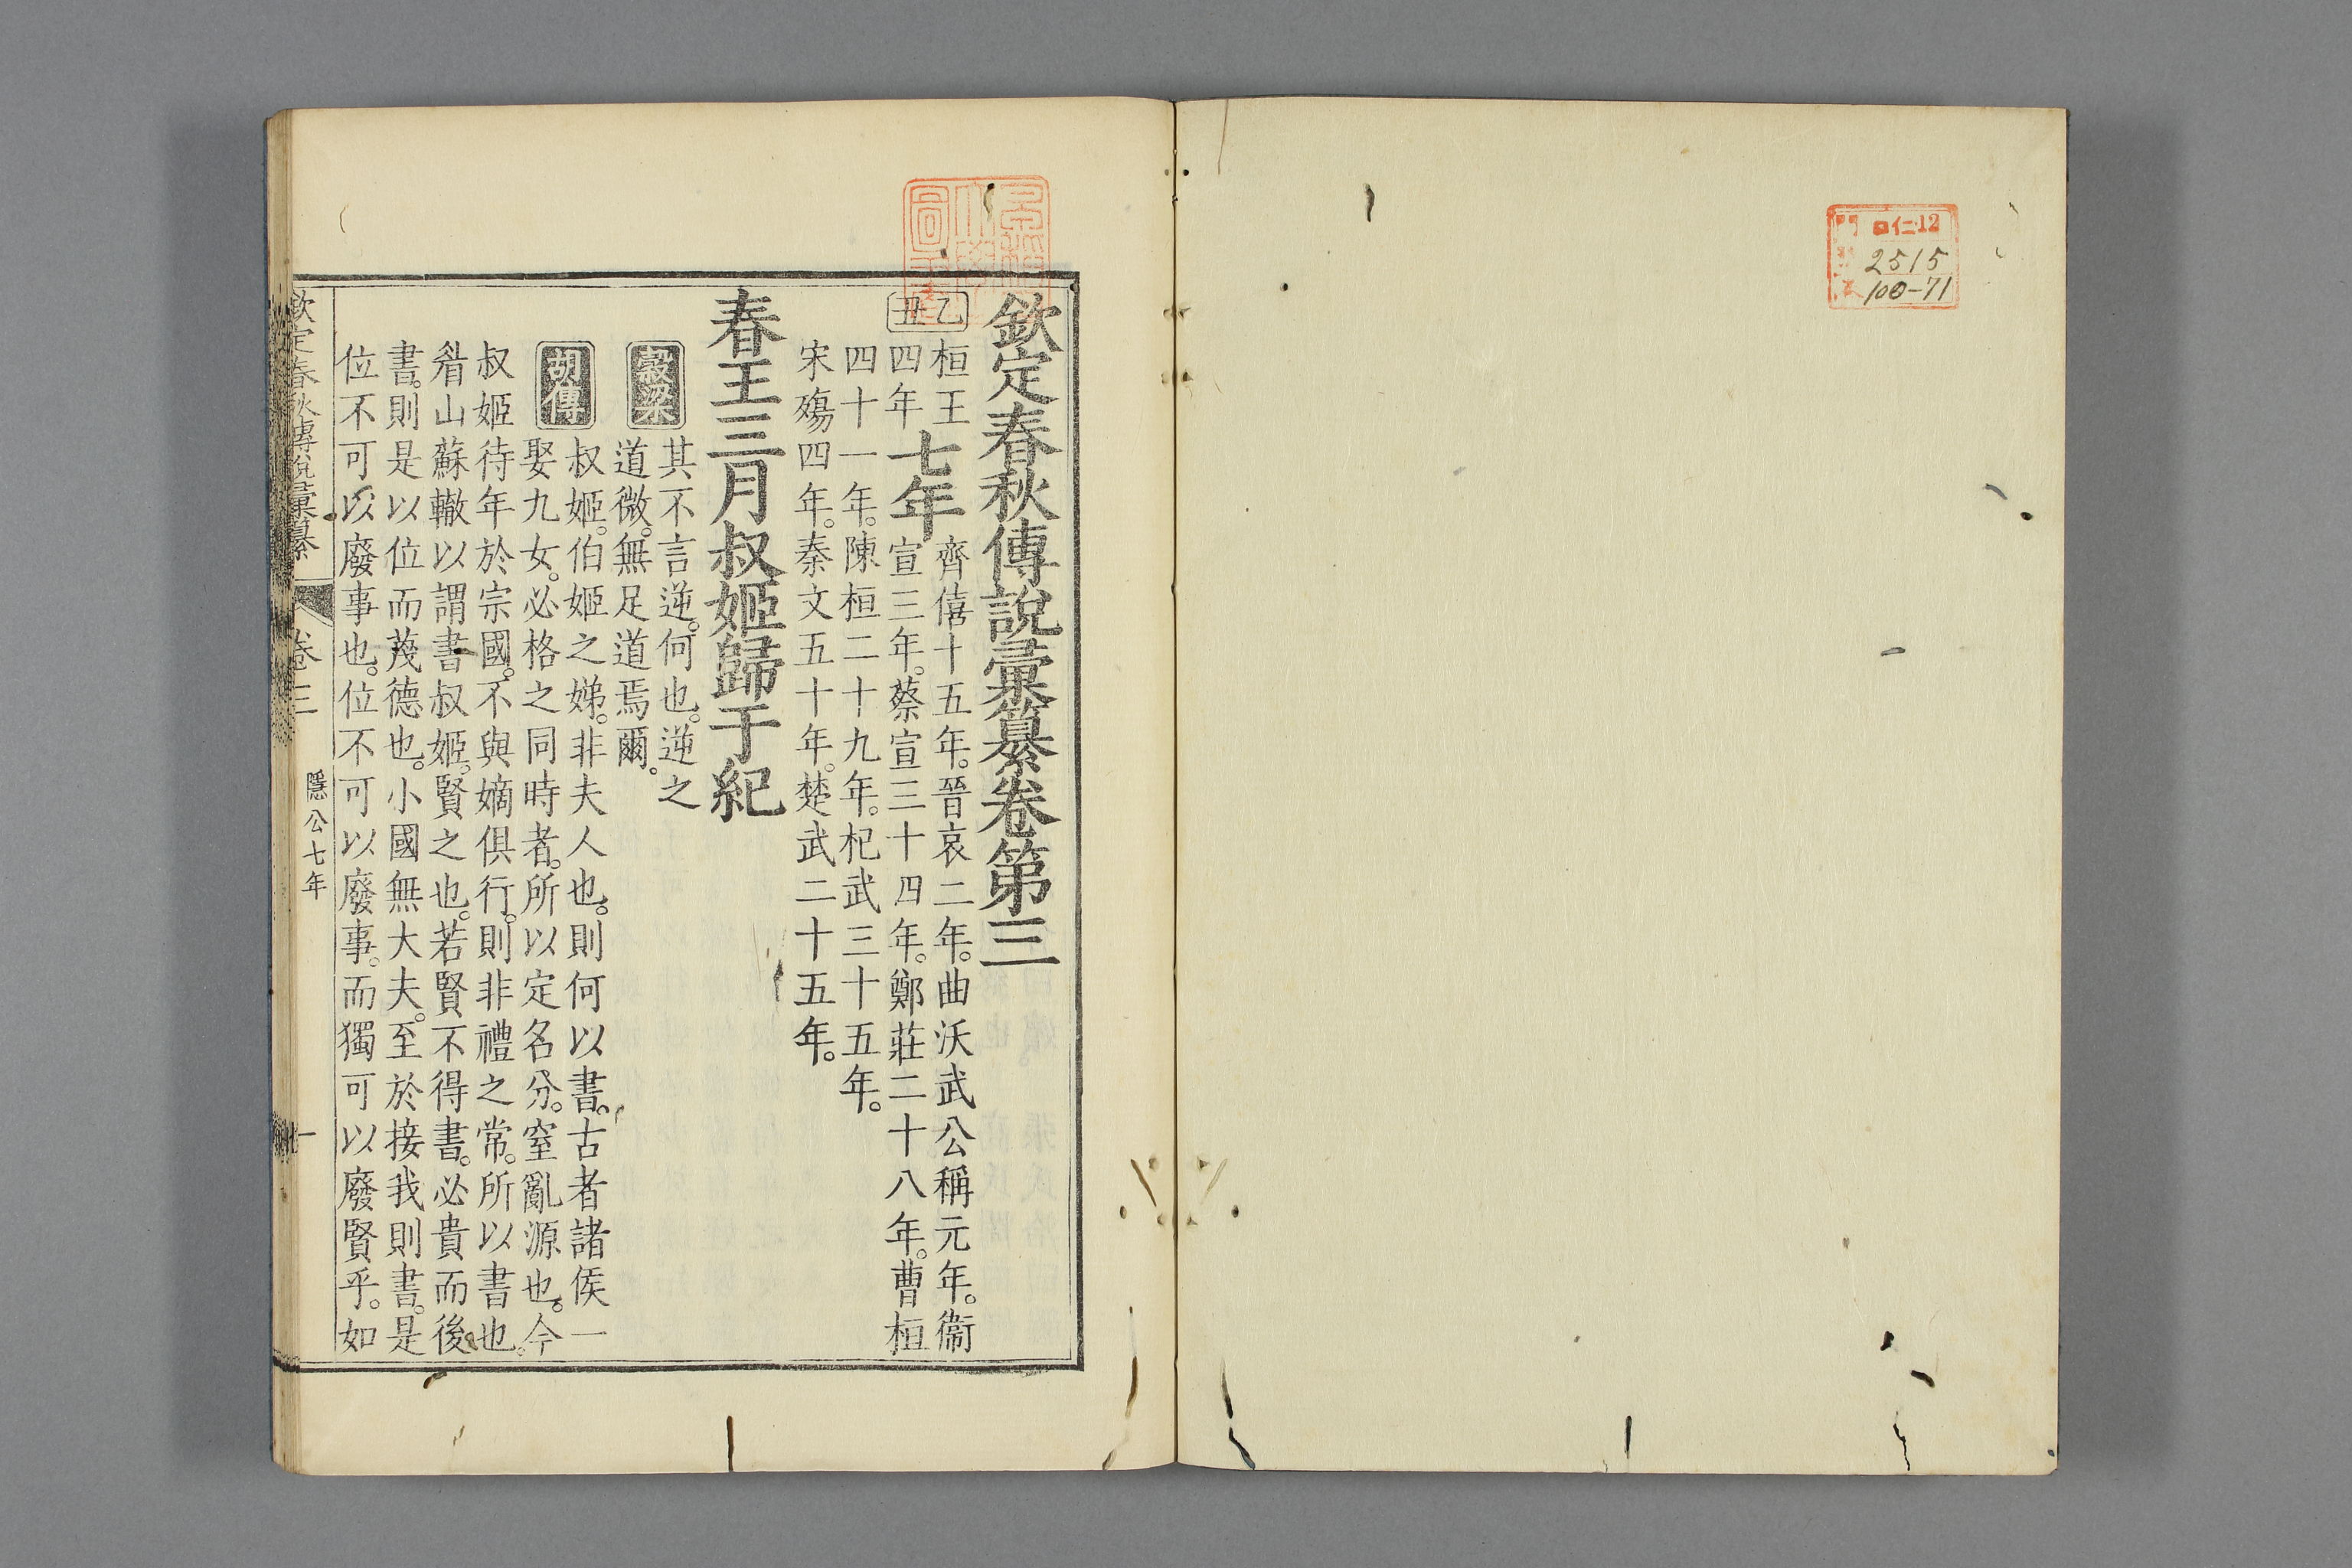 ロ仁12
2515
100-71
欽定春秋傳說彙纂卷第三
乙丑
桓王
四年
七年
齊僖十五年。晉哀二年。曲沃武公稱元年。衞
宣三年。蔡宣三十四年。鄭莊二十八年。曹桓
四十一年。陳桓二十九年。杞武三十五年。
宋殤四年。秦文五十年。楚武二十五年。
春王三月叔姬歸于紀
穀梁
其不言逆。何也。逆之
道微。無足道焉爾。
胡傳
叔姬。伯姬之娣。非夫人也。則何以書。古者諸侯一
娶九女。必格之同時者。所以定名分。窒亂源也。今
叔姬待年於宗國。不與嫡俱行。則非禮之常。所以書也。
眉山蘇轍以謂書叔姬。賢之也。若賢不得書。必貴而後
書。則是以位而蔑德也。小國無大夫。至於接我則書。是
位不可以廢事也。位不可以廢事。而獨可以廢賢乎。如
欽定春秋傳說彙纂 卷三 隱公七年 一